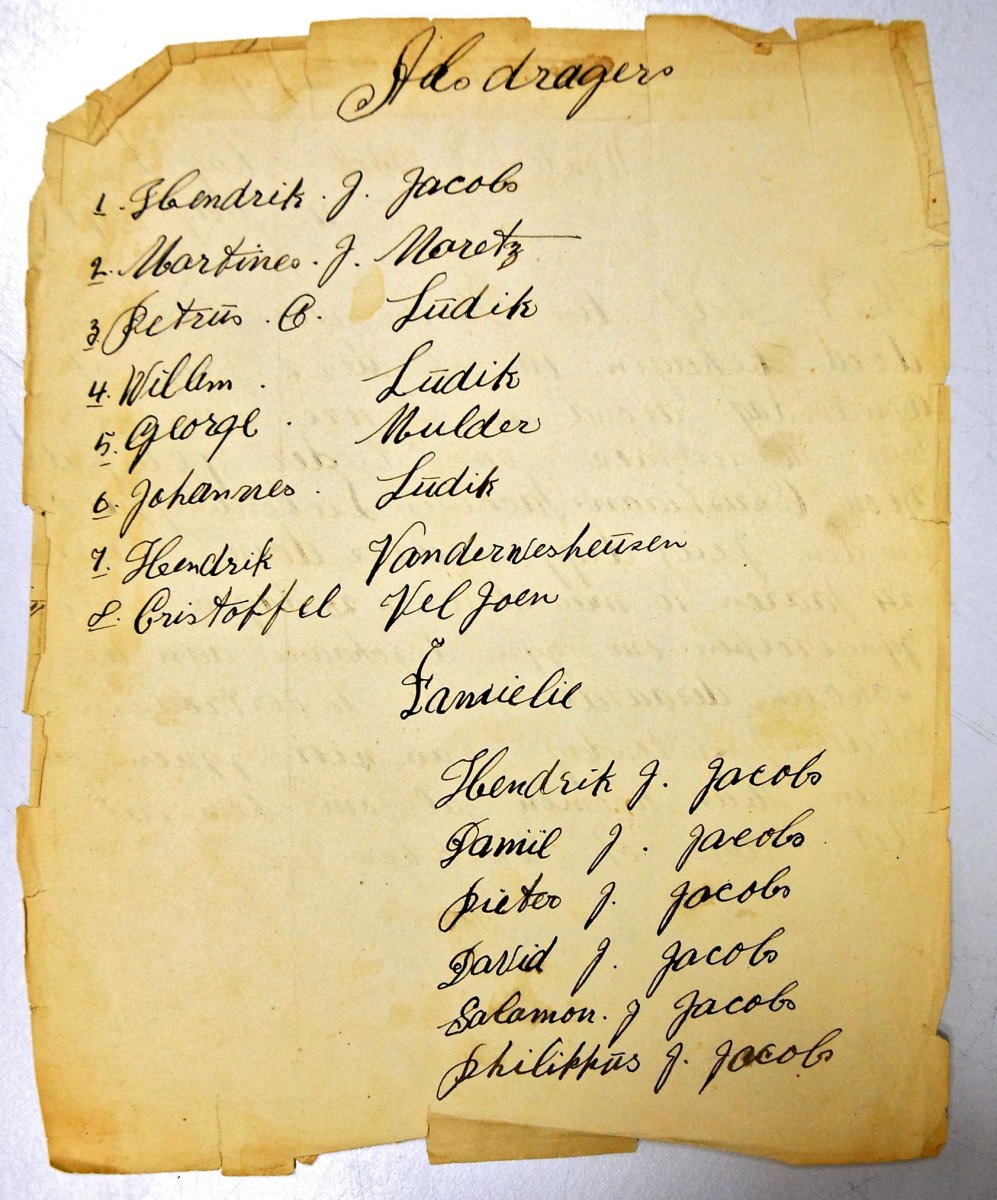 Als dragers
1. Hendrik. J. Jacobs
2. Martines. J. Moretz
3. Petrus. C. Ludik
4. Willem. Ludik
5. George. Mulder
6. Johannes. Ludik
7. Hendrik Vanderwesheusen
8. Cristoffel Vel Joen
Famielie
Hendrik J. Jacobs
Daniël J. Jacobs
Pieter J. Jacobs
David J. Jacobs
Salomon. J Jacobs
Philippus J. Jacobs